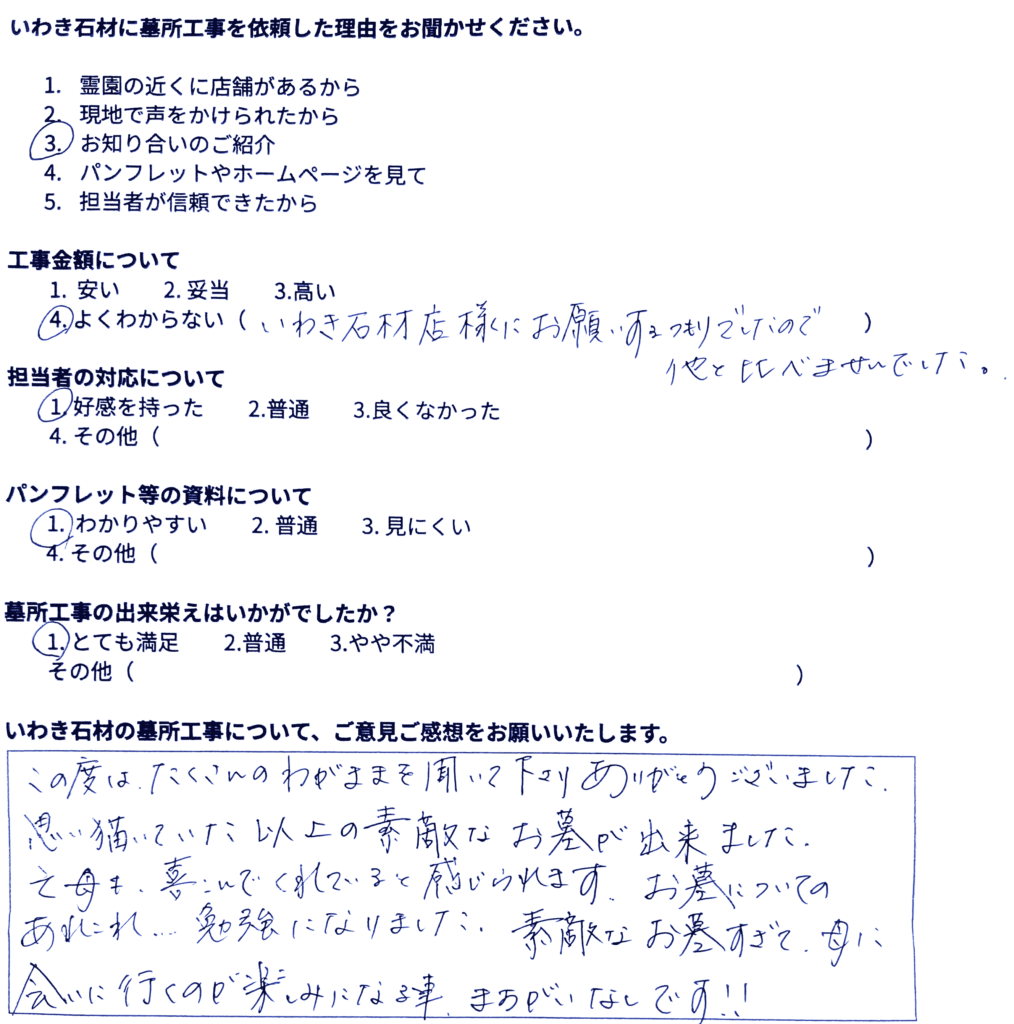 いわき石材に墓所工事を依頼した理由をお聞かせください。
1. 霊園の近くに店舗があるから
2. 現地で声をかけられたから
3. お知り合いのご紹介
4. パンフレットやホームページを見て
5. 担当者が信頼できたから
工事金額について
1. 安い 2. 妥当 3.高い
4.よくわからない（いわき石材店様にお願いするつもりでしたので）
他と比べませんでした。
担当者の対応について
1.好感を持った 2.普通 3.良くなかった
4. その他（ ）
パンフレット等の資料について
1. わかりやすい 2. 普通 3. 見にくい
4. その他（ ）
墓所工事の出来栄えはいかがでしたか？
1. とても満足 2.普通 3.やや不満
その他（ ）
いわき石材の墓所工事について、ご意見ご感想をお願いいたします。
この度は、たくさんのわがままを聞いて下さりありがとうございました。
思い描いていた以上の素敵なお墓が出来ました。
母も、喜こんでくれていると感じられます。お墓についての
あれこれ…勉強になりました。素敵なお墓すぎて、母に
会いに行くのが楽しみになる事、まちがいなしです!!